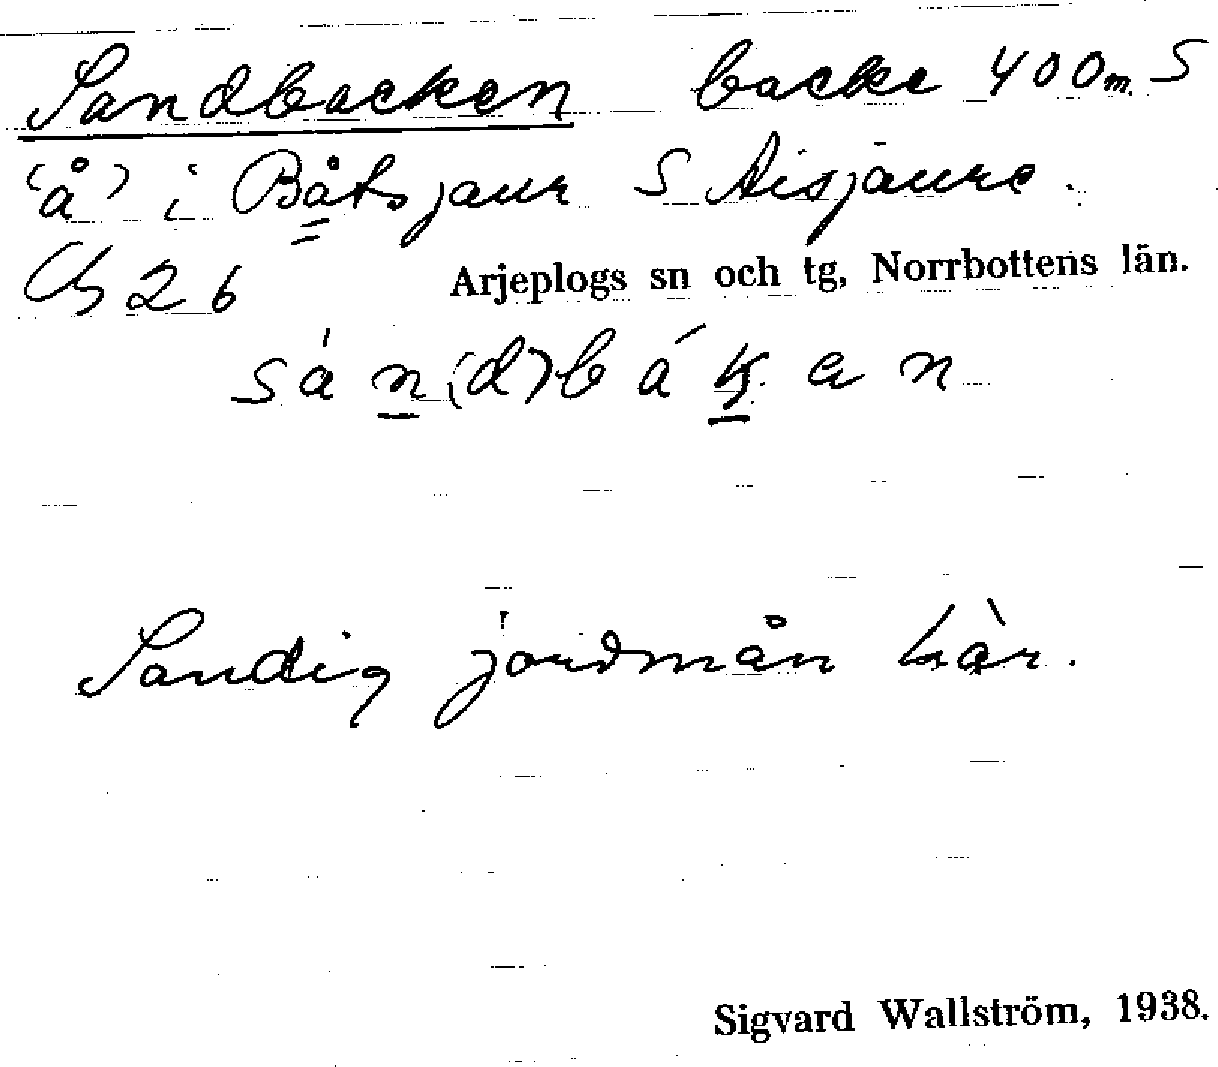 Sandbacken backe 400m S
'å' i Båtsjaur S Aisjaure.
Ch 26 Arjeplogs sn och tg, Norrbottens län.
sán(d)bákan
Sandig jordmån här.
Sigvard Wallström, 1938.